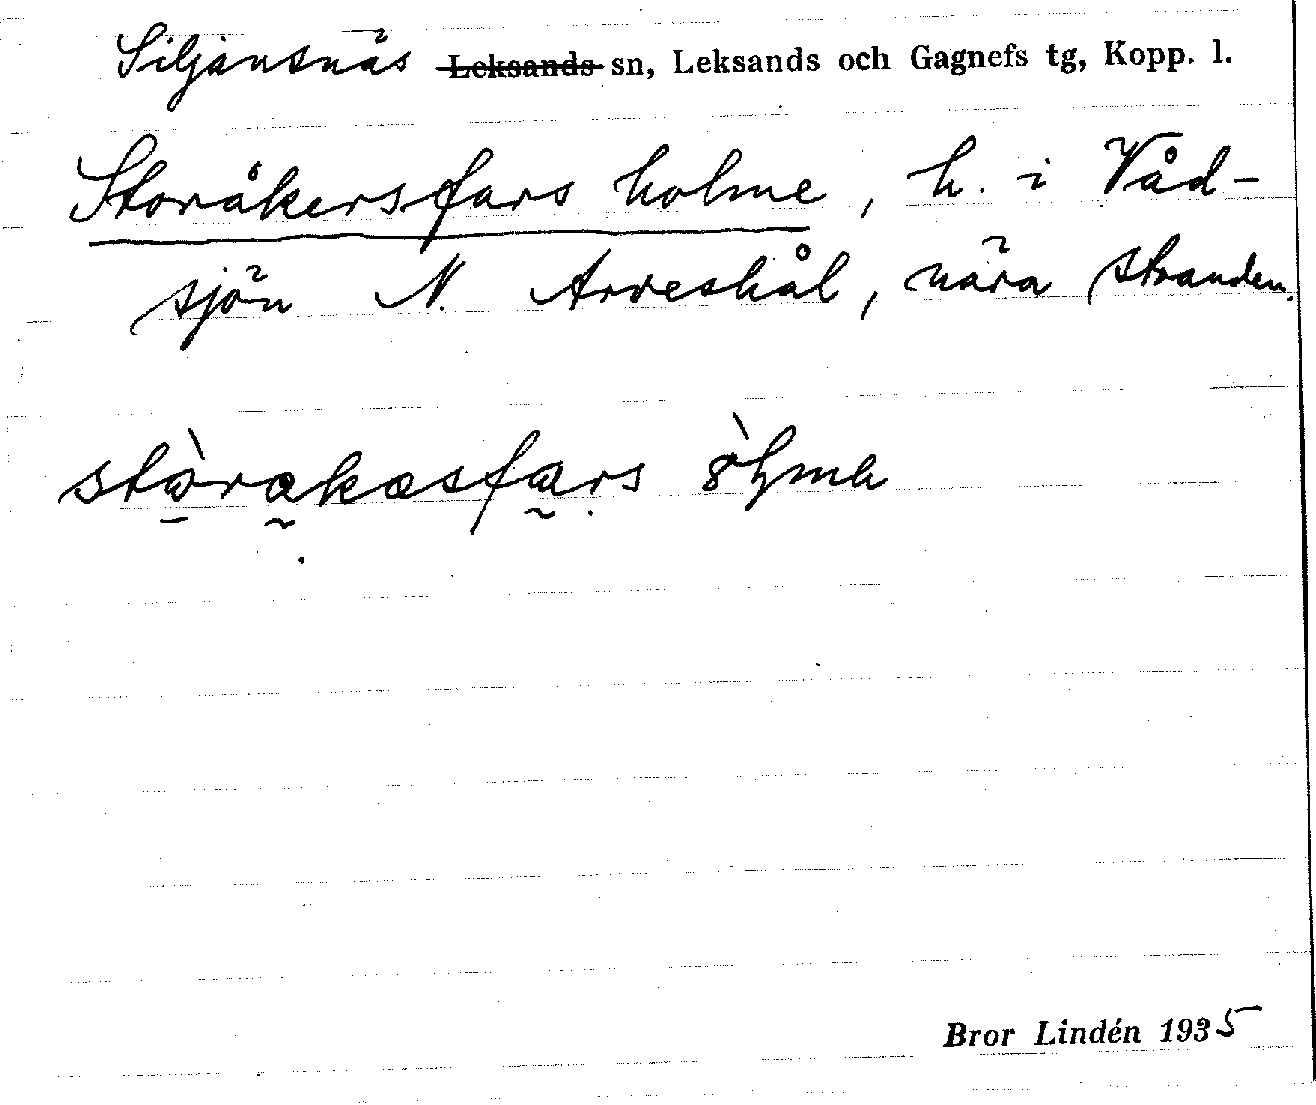 Siljansnäs ~~Leksands~~ sn, Leksands och Gagnefs tg, Kopp. l.
Storåkersfars holme, h. i Våd-
sjön N. Arveshål, nära stranden.
Bror Lindén 1935